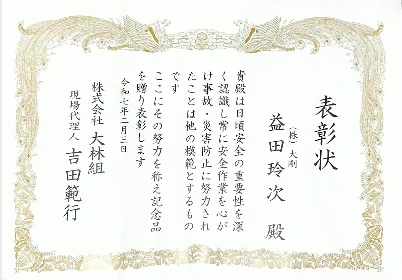 表彰状
(株)大剛
益田玲次 殿
貴殿は日頃安全の重要性を深
く認識し常に安全作業を心が
け事故・災害防止に努力され
たことは他の模範とするもの
です
ここにその努力を称え記念品
を贈り表彰します
令和七年二月三日
株式会社 大林組
現場代理人 吉田範行